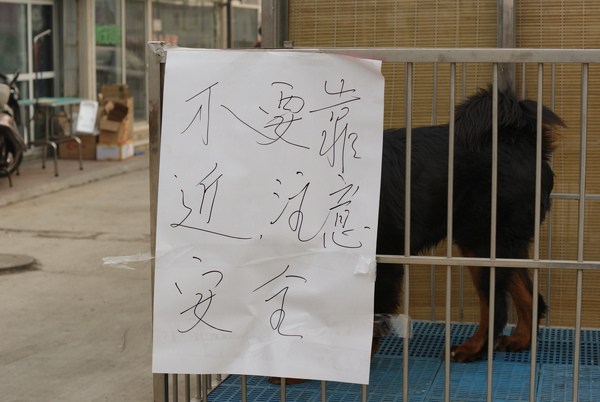 不要靠
近,注意
安全